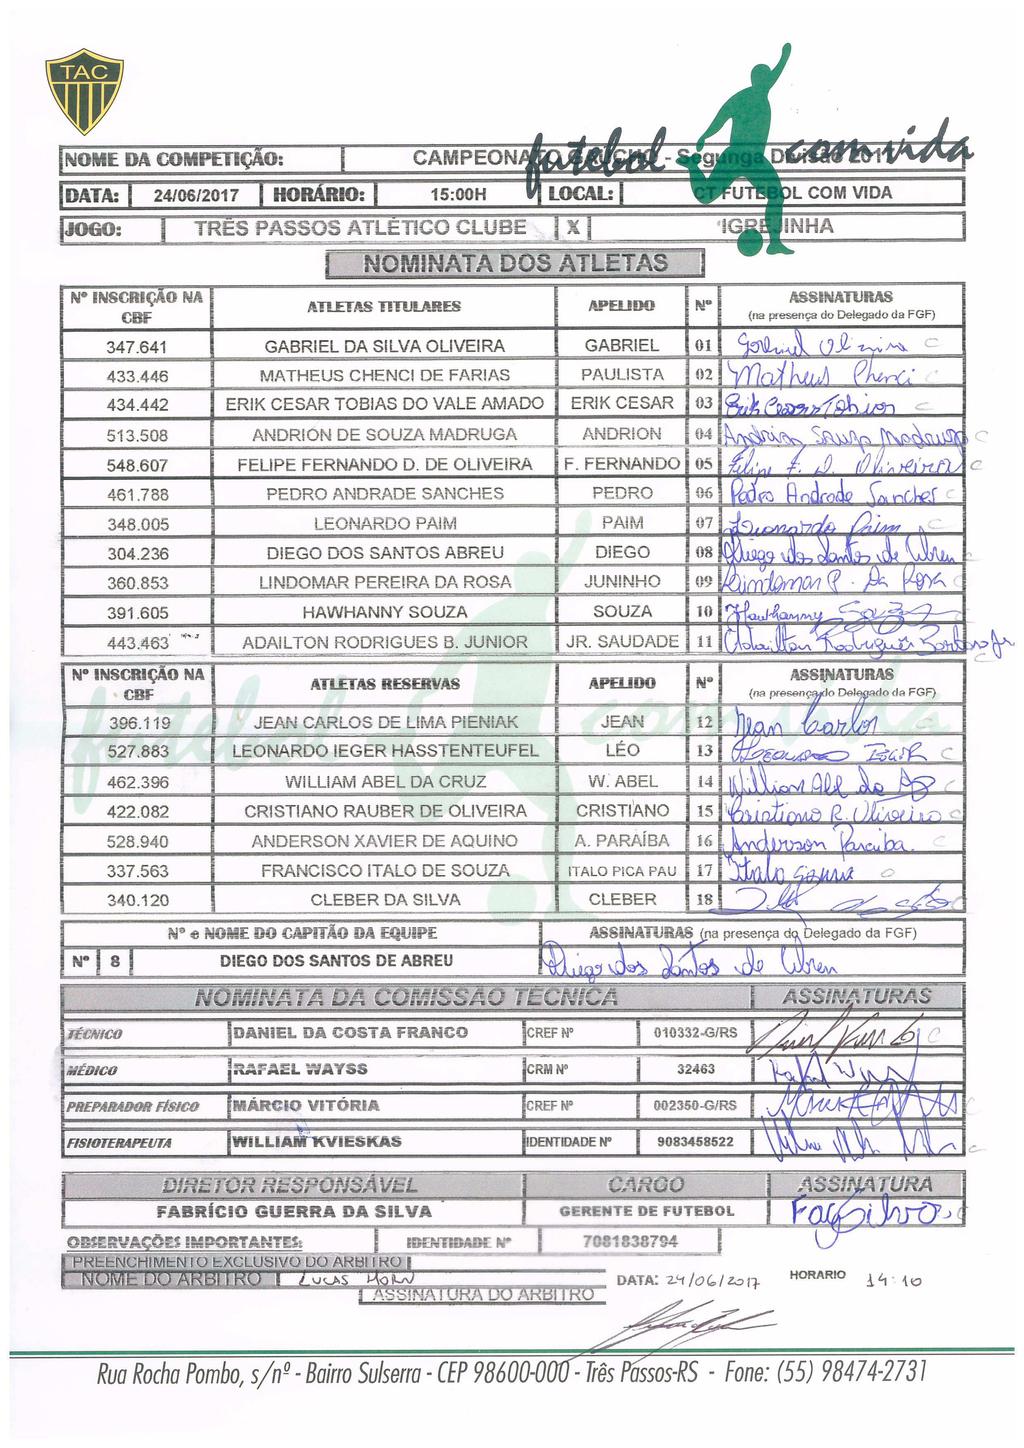 TAC
futebol com vida
NOME DA COMPETIÇÃO: CAMPEONATO GAÚCHO - Segunda Divisão 2017
DATA: 24/06/2017 HORÁRIO: 15:00H LOCAL: CT FUTEBOL COM VIDA
JOGO: TRÊS PASSOS ATLÉTICO CLUBE X IGREJINHA
NOMINATA DOS ATLETAS
Nº INSCRIÇÃO NA CBF ATLETAS TITULARES APELIDO Nº ASSINATURAS (na presença do Delegado da FGF)
347.641 GABRIEL DA SILVA OLIVEIRA GABRIEL 01 Gabriel Oliveira
433.446 MATHEUS CHENCI DE FARIAS PAULISTA 02 Matheus Chenci
434.442 ERIK CESAR TOBIAS DO VALE AMADO ERIK CESAR 03 Erik Cesar Tobias
513.508 ANDRION DE SOUZA MADRUGA ANDRION 04 Andrion Souza Madruga
548.607 FELIPE FERNANDO D. DE OLIVEIRA F. FERNANDO 05 Felipe F. D. Oliveira
461.788 PEDRO ANDRADE SANCHES PEDRO 06 Pedro Andrade Sanches
348.005 LEONARDO PAIM PAIM 07 Leonardo Paim
304.236 DIEGO DOS SANTOS ABREU DIEGO 08 Diego dos Santos de Abreu
360.853 LINDOMAR PEREIRA DA ROSA JUNINHO 09 Lindomar P. Da Rosa
391.605 HAWHANNY SOUZA SOUZA 10 Hawhanny Souza
443.463 ADAILTON RODRIGUES B. JUNIOR JR. SAUDADE 11 Adailton Rodrigues Barbosa Jr
Nº INSCRIÇÃO NA CBF ATLETAS RESERVAS APELIDO Nº ASSINATURAS (na presença do Delegado da FGF)
396.119 JEAN CARLOS DE LIMA PIENIAK JEAN 12 Jean Carlos
527.883 LEONARDO IEGER HASSTENTEUFEL LÉO 13
462.396 WILLIAM ABEL DA CRUZ W. ABEL 14 William
422.082 CRISTIANO RAUBER DE OLIVEIRA CRISTIANO 15 Cristiano R. Oliveira
528.940 ANDERSON XAVIER DE AQUINO A. PARAÍBA 16 Anderson Paraiba.
337.563 FRANCISCO ITALO DE SOUZA ITALO PICA PAU 17 Italo
340.120 CLEBER DA SILVA CLEBER 18
Nº e NOME DO CAPITÃO DA EQUIPE ASSINATURAS (na presença do Delegado da FGF)
Nº 8 DIEGO DOS SANTOS DE ABREU Diego dos Santos de Abreu
NOMINATA DA COMISSÃO TÉCNICA ASSINATURAS
TÉCNICO DANIEL DA COSTA FRANCO CREF Nº 010332-G/RS
MÉDICO RAFAEL WAYSS CRM Nº 32463
PREPARADOR FÍSICO MÁRCIO VITÓRIA CREF Nº 002350-G/RS
FISIOTERAPEUTA WILLIAM KVIESKAS IDENTIDADE Nº 9083458522
DIRETOR RESPONSÁVEL CARGO ASSINATURA
FABRÍCIO GUERRA DA SILVA GERENTE DE FUTEBOL
OBSERVAÇÕES IMPORTANTES: IDENTIDADE Nº 7081838794
PREENCHIMENTO EXCLUSIVO DO ARBITRO
NOME DO ARBITRO LUCAS HORN DATA: 24/06/2017 HORARIO 14:10
ASSINATURA DO ARBITRO
Rua Rocha Pombo, s/nº - Bairro Sulserra - CEP 98600-000 - Três Passos-RS - Fone: (55) 98474-2731